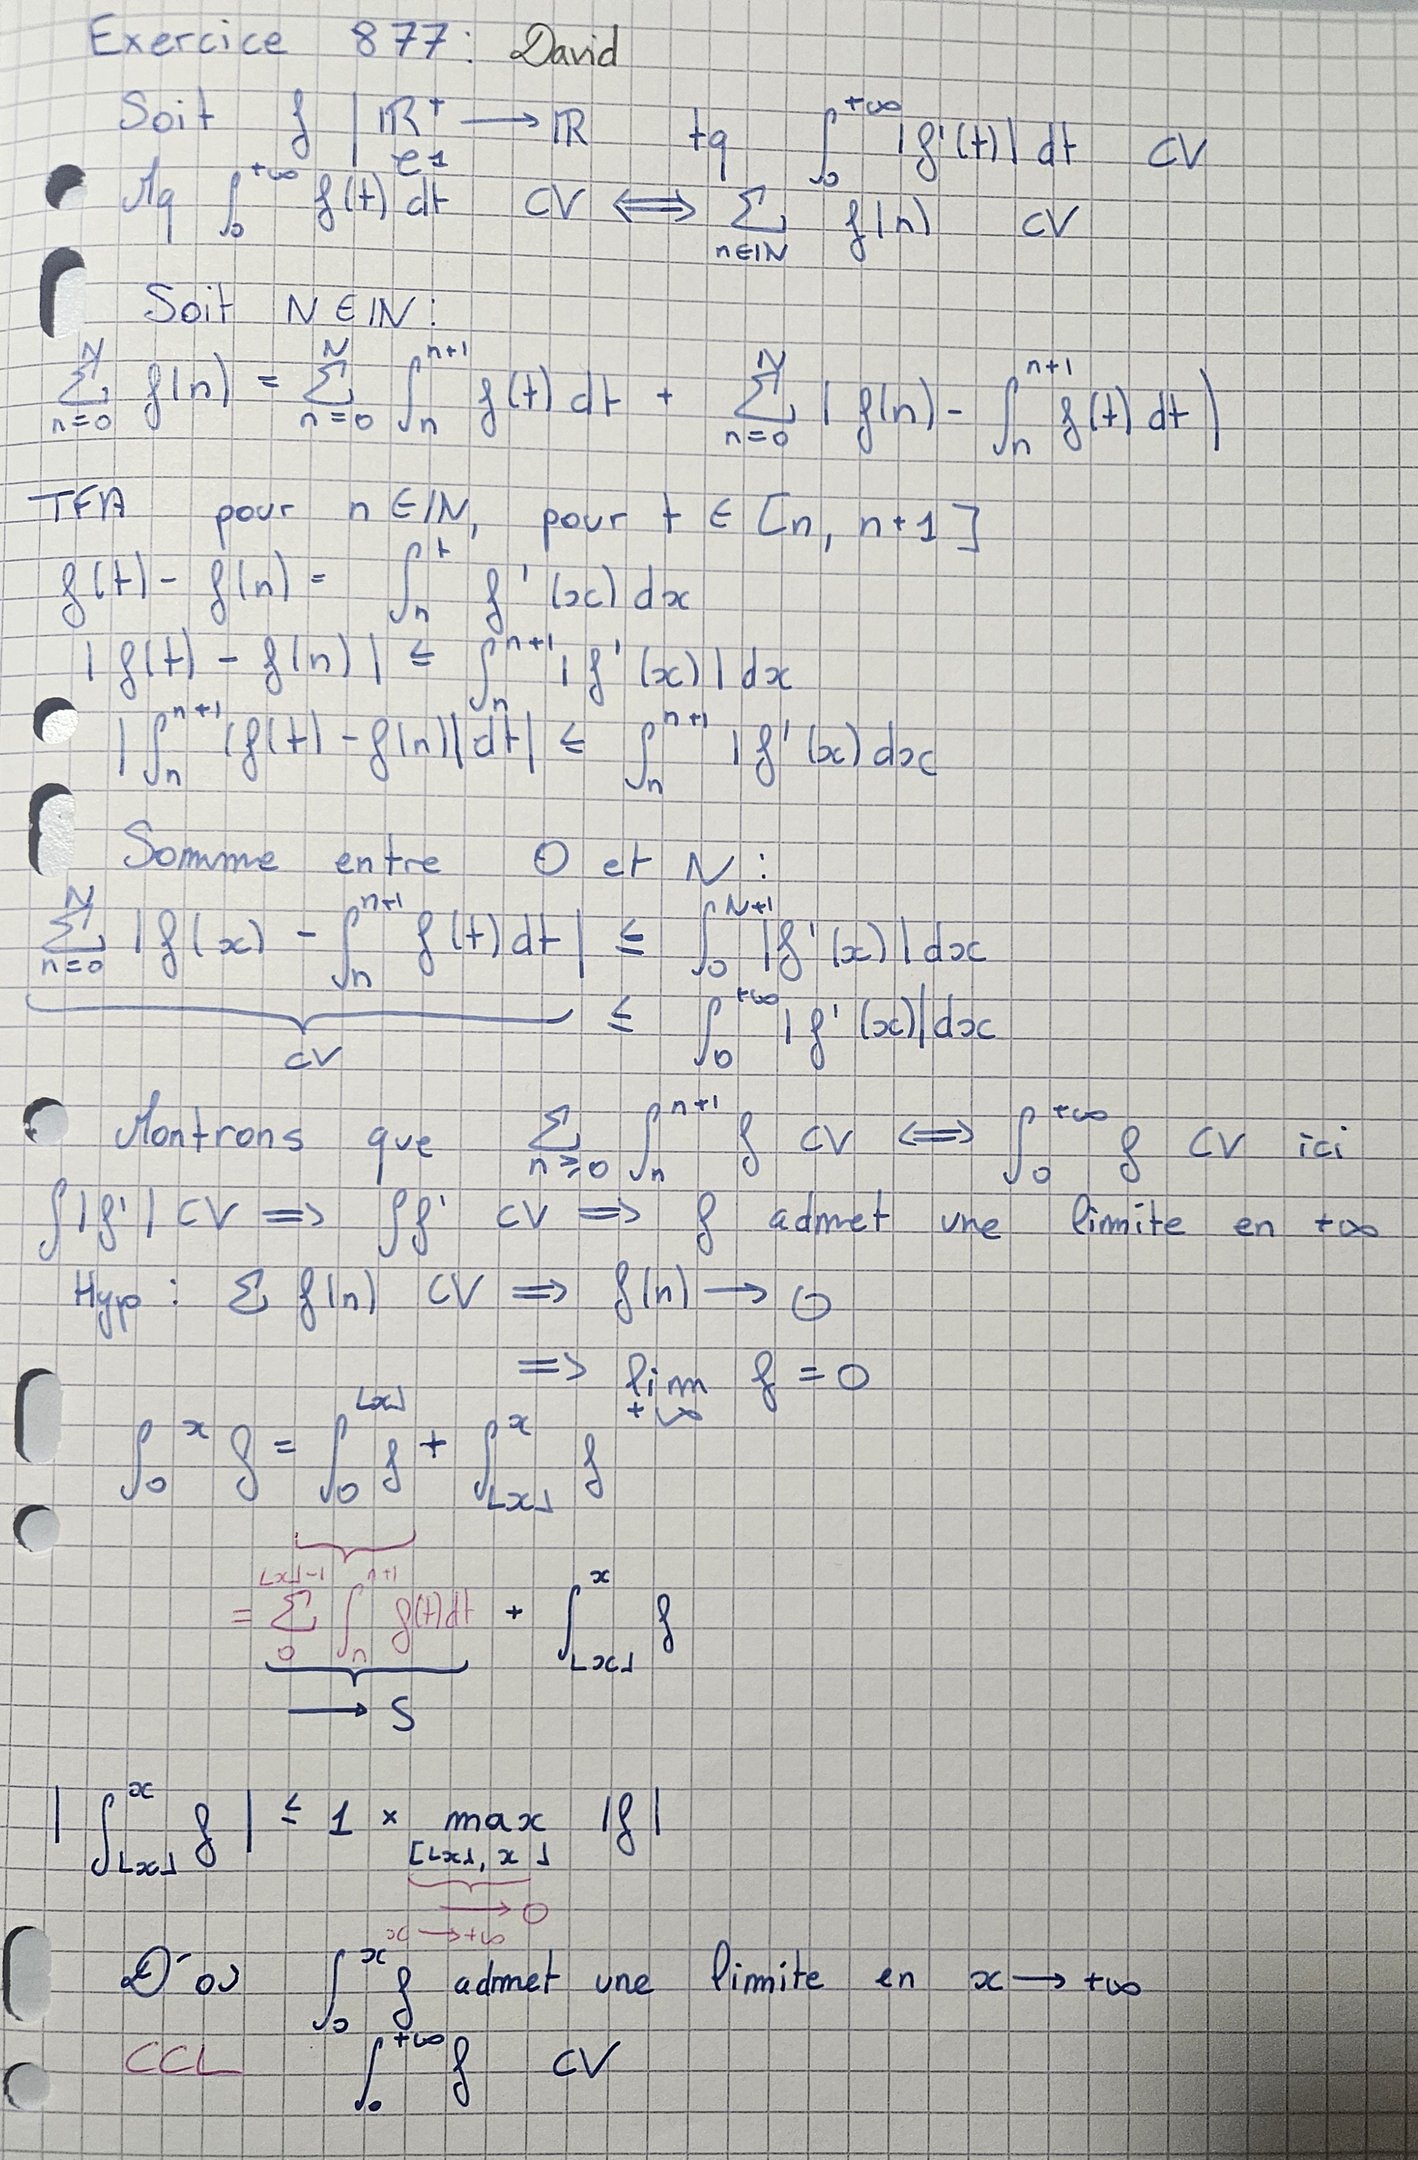 Exercice 877 : David
Soit f | ℝ⁺ → ℝ tq ∫₀^{+∞} |f'(t)| dt CV
e¹
Mq ∫₀^{+∞} f(t) dt CV ⟺ Σ_{n∈ℕ} f(n) CV
Soit N ∈ ℕ :
Σ_{n=0}^{N} f(n) = Σ_{n=0}^{N} ∫_n^{n+1} f(t) dt + Σ_{n=0}^{N} | f(n) - ∫_n^{n+1} f(t) dt )
TFA pour n ∈ ℕ, pour t ∈ [n, n+1]
f(t) - f(n) = ∫_n^t f'(x) dx
| f(t) - f(n) | ≤ ∫_n^{n+1} | f'(x) | dx
| ∫_n^{n+1} (f(t) - f(n)) dt | ≤ ∫_n^{n+1} | f'(x) dx
Somme entre 0 et N :
Σ_{n=0}^{N} | f(x) - ∫_n^{n+1} f(t) dt | ≤ ∫_0^{N+1} |f'(x)| dx
≤ ∫_0^{+∞} | f'(x)| dx
CV
Montrons que Σ_{n≥0} ∫_n^{n+1} f CV ⟺ ∫_0^{+∞} f CV ici
∫|f'| CV ⟹ ∫f' CV ⟹ f admet une limite en +∞
Hyp : Σ f(n) CV ⟹ f(n) → 0
⟹ lim_{+∞} f = 0
∫_0^x f = ∫_0^{⌊x⌋} f + ∫_{⌊x⌋}^x f
= Σ_0^{⌊x⌋-1} ∫_n^{n+1} f(t)dt + ∫_{⌊x⌋}^x f
→ S
| ∫_{⌊x⌋}^x f | ≤ 1 × max_{[⌊x⌋, x]} |f|
→ 0
x → +∞
D'où ∫_0^x f admet une limite en x → +∞
CCL ∫_0^{+∞} f CV